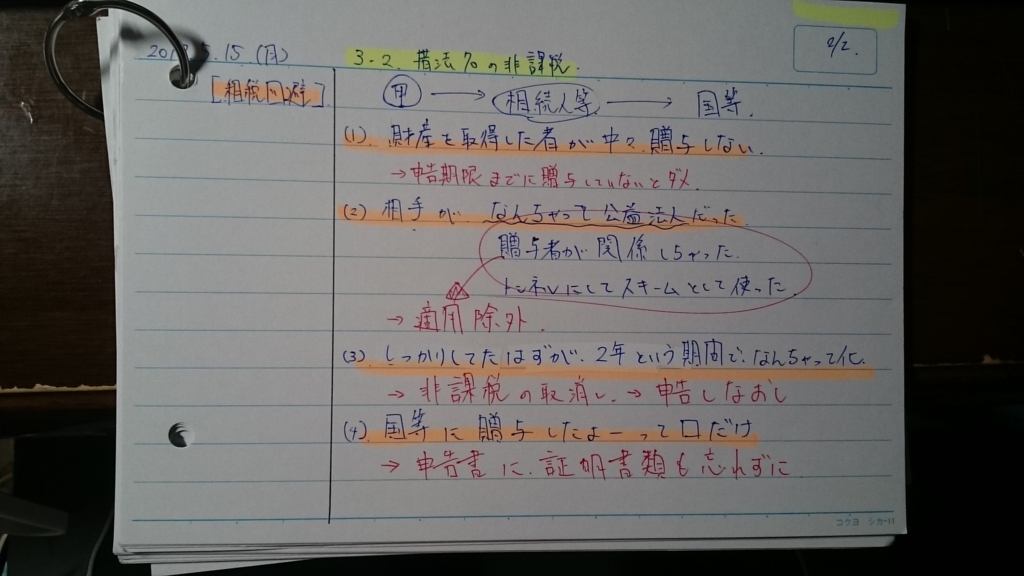 5.15 (月)
3-2. 措法70の非課税.
2/2.
[租税回避]
甲 → 相続人等 → 国等.
(1). 財産を取得した者が中々贈与しない.
→申告期限までに贈与していないとダメ.
(2) 相手が なんちゃって公益法人だった
贈与者が関係しちゃった.
トンネルにしてスキームとして使った.
→ 適用除外.
(3) しっかりしてたはずが、2年という期間で、なんちゃって化.
→ 非課税の取消し. → 申告しなおし
(4). 国等に贈与したよーって口だけ
→ 申告書に、証明書類も忘れずに
コクヨ シカ-11